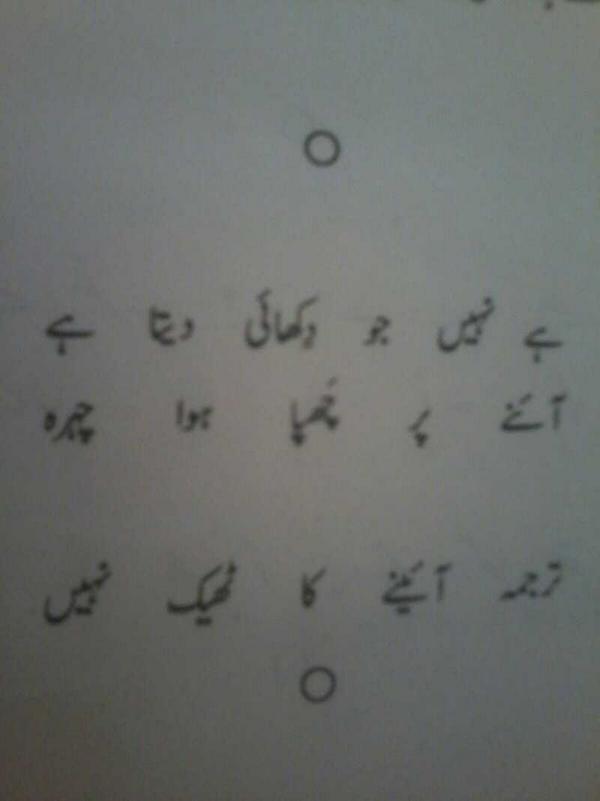 ہے نہیں جو دکھائی دیتا ہے
آئنے پر چَھپا ہوا چہرہ
ترجمہ آئینے کا ٹھیک نہیں